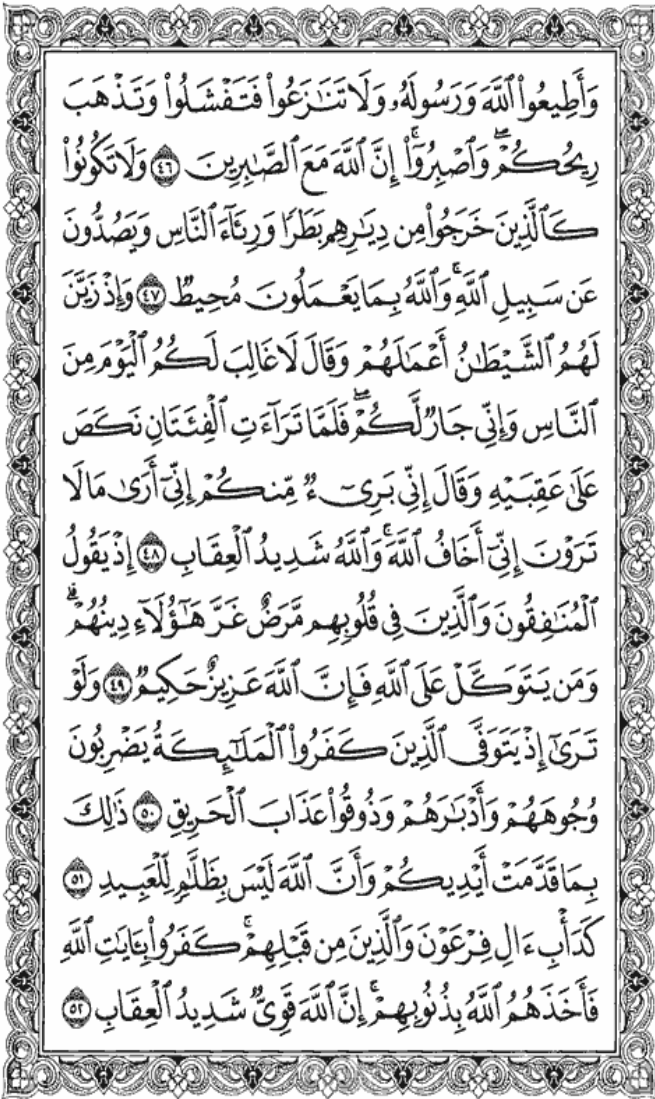 وَأَطِيعُوا۟ ٱللَّهَ وَرَسُولَهُۥ وَلَا تَنَٰزَعُوا۟ فَتَفْشَلُوا۟ وَتَذْهَبَ
رِيحُكُمْ ۖ وَٱصْبِرُوٓا۟ ۚ إِنَّ ٱللَّهَ مَعَ ٱلصَّٰبِرِينَ ٤٦ وَلَا تَكُونُوا۟
كَٱلَّذِينَ خَرَجُوا۟ مِن دِيَٰرِهِم بَطَرًا وَرِئَآءَ ٱلنَّاسِ وَيَصُدُّونَ
عَن سَبِيلِ ٱللَّهِ ۚ وَٱللَّهُ بِمَا يَعْمَلُونَ مُحِيطٌ ٤٧ وَإِذْ زَيَّنَ
لَهُمُ ٱلشَّيْطَٰنُ أَعْمَٰلَهُمْ وَقَالَ لَا غَالِبَ لَكُمُ ٱلْيَوْمَ مِنَ
ٱلنَّاسِ وَإِنِّى جَارٌ لَّكُمْ ۖ فَلَمَّا تَرَآءَتِ ٱلْفِئَتَانِ نَكَصَ
عَلَىٰ عَقِبَيْهِ وَقَالَ إِنِّى بَرِىٓءٌ مِّنكُمْ إِنِّىٓ أَرَىٰ مَا لَا
تَرَوْنَ إِنِّىٓ أَخَافُ ٱللَّهَ ۚ وَٱللَّهُ شَدِيدُ ٱلْعِقَابِ ٤٨ إِذْ يَقُولُ
ٱلْمُنَٰفِقُونَ وَٱلَّذِينَ فِى قُلُوبِهِم مَّرَضٌ غَرَّ هَٰٓؤُلَآءِ دِينُهُمْ ۗ
وَمَن يَتَوَكَّلْ عَلَى ٱللَّهِ فَإِنَّ ٱللَّهَ عَزِيزٌ حَكِيمٌ ٤٩ وَلَوْ
تَرَىٰٓ إِذْ يَتَوَفَّى ٱلَّذِينَ كَفَرُوا۟ ٱلْمَلَٰٓئِكَةُ يَضْرِبُونَ
وُجُوهَهُمْ وَأَدْبَٰرَهُمْ وَذُوقُوا۟ عَذَابَ ٱلْحَرِيقِ ٥٠ ذَٰلِكَ
بِمَا قَدَّمَتْ أَيْدِيكُمْ وَأَنَّ ٱللَّهَ لَيْسَ بِظَلَّٰمٍ لِّلْعَبِيدِ ٥١
كَدَأْبِ ءَالِ فِرْعَوْنَ وَٱلَّذِينَ مِن قَبْلِهِمْ ۚ كَفَرُوا۟ بِـَٔايَٰتِ ٱللَّهِ
فَأَخَذَهُمُ ٱللَّهُ بِذُنُوبِهِمْ ۗ إِنَّ ٱللَّهَ قَوِىٌّ شَدِيدُ ٱلْعِقَابِ ٥٢